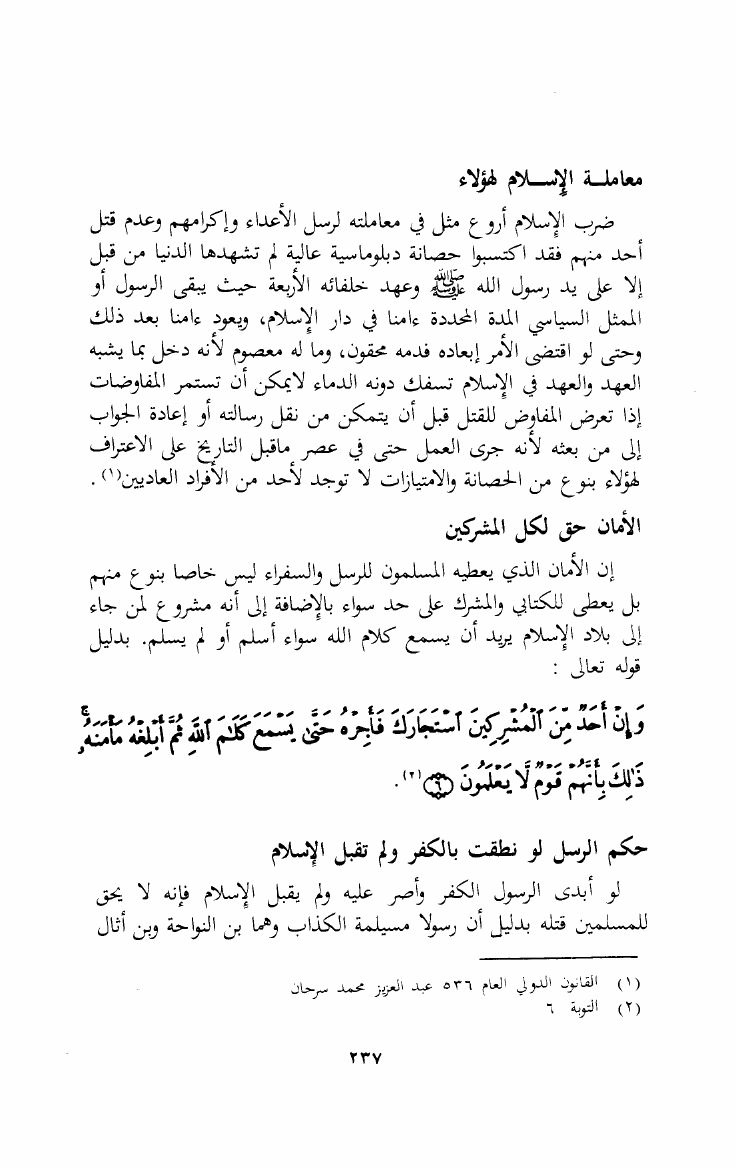 معاملة الإسلام لهؤلاء
ضرب الإسلام أروع مثل في معاملته لرسل الأعداء وإكرامهم وعدم قتل
أحد منهم فقد اكتسبوا حصانة دبلوماسية عالية لم تشهدها الدنيا من قبل
إلا على يد رسول الله ﷺ وعهد خلفائه الأربعة حيث يبقى الرسول أو
الممثل السياسي المدة المحددة ءامنا في دار الإسلام، ويعود ءامنا بعد ذلك
وحتى لو اقتضى الأمر إبعاده فدمه محقون، وما له معصوم لأنه دخل بما يشبه
العهد والعهد في الإسلام تسفك دونه الدماء لايمكن أن تستمر المفاوضات
إذا تعرض المفاوض للقتل قبل أن يتمكن من نقل رسالته أو إعادة الجواب
إلى من بعثه لأنه جرى العمل حتى في عصر ماقبل التاريخ على الاعتراف
لهؤلاء بنوع من الحصانة والامتيازات لا توجد لأحد من الأفراد العاديين(١).
الأمان حق لكل المشركين
إن الأمان الذي يعطيه المسلمون للرسل والسفراء ليس خاصا بنوع منهم
بل يعطى للكتابي والمشرك على حد سواء بالإضافة إلى أنه مشروع لمن جاء
إلى بلاد الإسلام يريد أن يسمع كلام الله سواء أسلم أو لم يسلم. بدليل
قوله تعالى :
وَإِنْ أَحَدٌ مِّنَ ٱلْمُشْرِكِينَ ٱسْتَجَارَكَ فَأَجِرْهُ حَتَّىٰ يَسْمَعَ كَلَٰمَ ٱللَّهِ ثُمَّ أَبْلِغْهُ مَأْمَنَهُۥ ۚ
ذَٰلِكَ بِأَنَّهُمْ قَوْمٌ لَّا يَعْلَمُونَ ﴿٦﴾(٢).
حكم الرسل لو نطقت بالكفر ولم تقبل الإسلام
لو أبدى الرسول الكفر وأصر عليه ولم يقبل الإسلام فإنه لا يحق
للمسلمين قتله بدليل أن رسولا مسيلمة الكذاب وهما بن النواحة وبن أثال
(١) القانون الدولي العام ٥٣٦ عبد العزيز محمد سرحان
(٢) التوبة ٦
٢٣٧